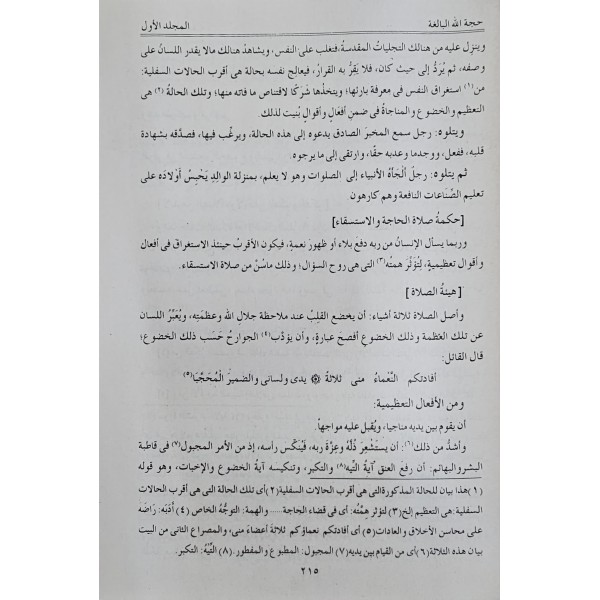 حجة الله البالغة
المجلد الأول
وينزل عليه من هنالك التجليات المقدسة، فتغلب على النفس، ويشاهدُ هنالك مالا يقدر اللسانُ على
وصفه، ثم يُرَدُّ إلى حيث كان، فلا يَقِرُّ به القرارُ، فيعالج نفسه بحالة هى أقرب الحالات السفلية:
من(١) استغراق النفس فى معرفة بارئها؛ ويتخذها شَرَكًا لاقتناص ما فاته منها؛ وتلك الحالةُ (٢) هى
التعظيم والخضوع والمناجاةُ فى ضمن أفعالٍ وأقوالٍ بُنيت لذلك
ويتلوه: رجل سمع المخبرَ الصادق يدعوه إلى هذه الحالة، ويرغّب فيها، فصدَّقه بشهادة
قلبه، ففعل، ووجدما وعدبه حقًا، وارتقى إلى ما يرجوه.
ثم يتلوه: رجلٌ ألْجأهُ الأنبياء إلى الصلوات وهو لا يعلم، بمنزلة الوالد يَحْبِسُ أولادَه على
تعليم الصِّناعات النافعة وهم كارهون
[حكمةُ صلاة الحاجة والاستسقاء]
وربما يسأل الإنسانُ من ربه دفعَ بلاء أو ظهورَ نعمةٍ، فيكون الأقربُ حينئذ الاستغراقَ فى أفعال
وأقوال تعظيميةٍ، لِتُؤثِّرَ همتُه(٣) التى هى روح السؤال؛ وذلك ماسُنَّ من صلاة الاستسقاء.
[هيئةُ الصلاة ]
وأصل الصلاة ثلاثةُ أشياءَ: أن يخضع القلبُ عند ملاحظة جلالِ الله وعظمَتِه، ويُعَبِّرُ اللسان
عن تلك العَظمة وذلك الخضوع أفصحَ عبارةٍ، وأن يؤدِّبَ(٤) الجوارحَ حَسَب ذلك الخضوع؛
قال القائل:
أفادتكم النَّعْماءُ منى ثلاثةً ۞ يدى ولسانى والضميرَ الْمُحَجَّبَا(٥)
ومن الأفعال التعظيمية:
أن يقوم بين يديه مناجيا، ويُقبل عليه مواجهاً.
وأشدُّ من ذلك(٦): أن يَستشْعِرَ ذُلَّه وعِزَّةَ ربه، فيُنَكِّسَ رأسه، إذ من الأمر المجبول(٧) فى قاطبة
البشر والبهائم: أن رفعَ العنق آيةُ التِّيه(٨) والتكبر، وتنكيسه آيةُ الخضوع والإخبات، وهو قوله
(١)هذا بيان للحالة المذكورة التى هى أقرب الحالات السفلية (٢)أى تلك الحالة التى هى أقرب الحالات
السفلية: هى التعظيم إلخ(٣) لتؤثر هِمَّتُه: أى فى قضاء الحاجة..... والهمة: التوجُّه الخاص (٤) أَدَّبَه: رَاضَه
على محاسن الأخلاق والعادات(٥) أى أفادتكم نعماؤكم ثلاثةَ أعضاءَ منى، والمصراع الثانى من البيت
بيان هذه الثلاثة(٦)أى من القيام بين يديه(٧) المجبول: المطبوع والمفطور.(٨) التِّيْهُ: التكبر.
٢١٥